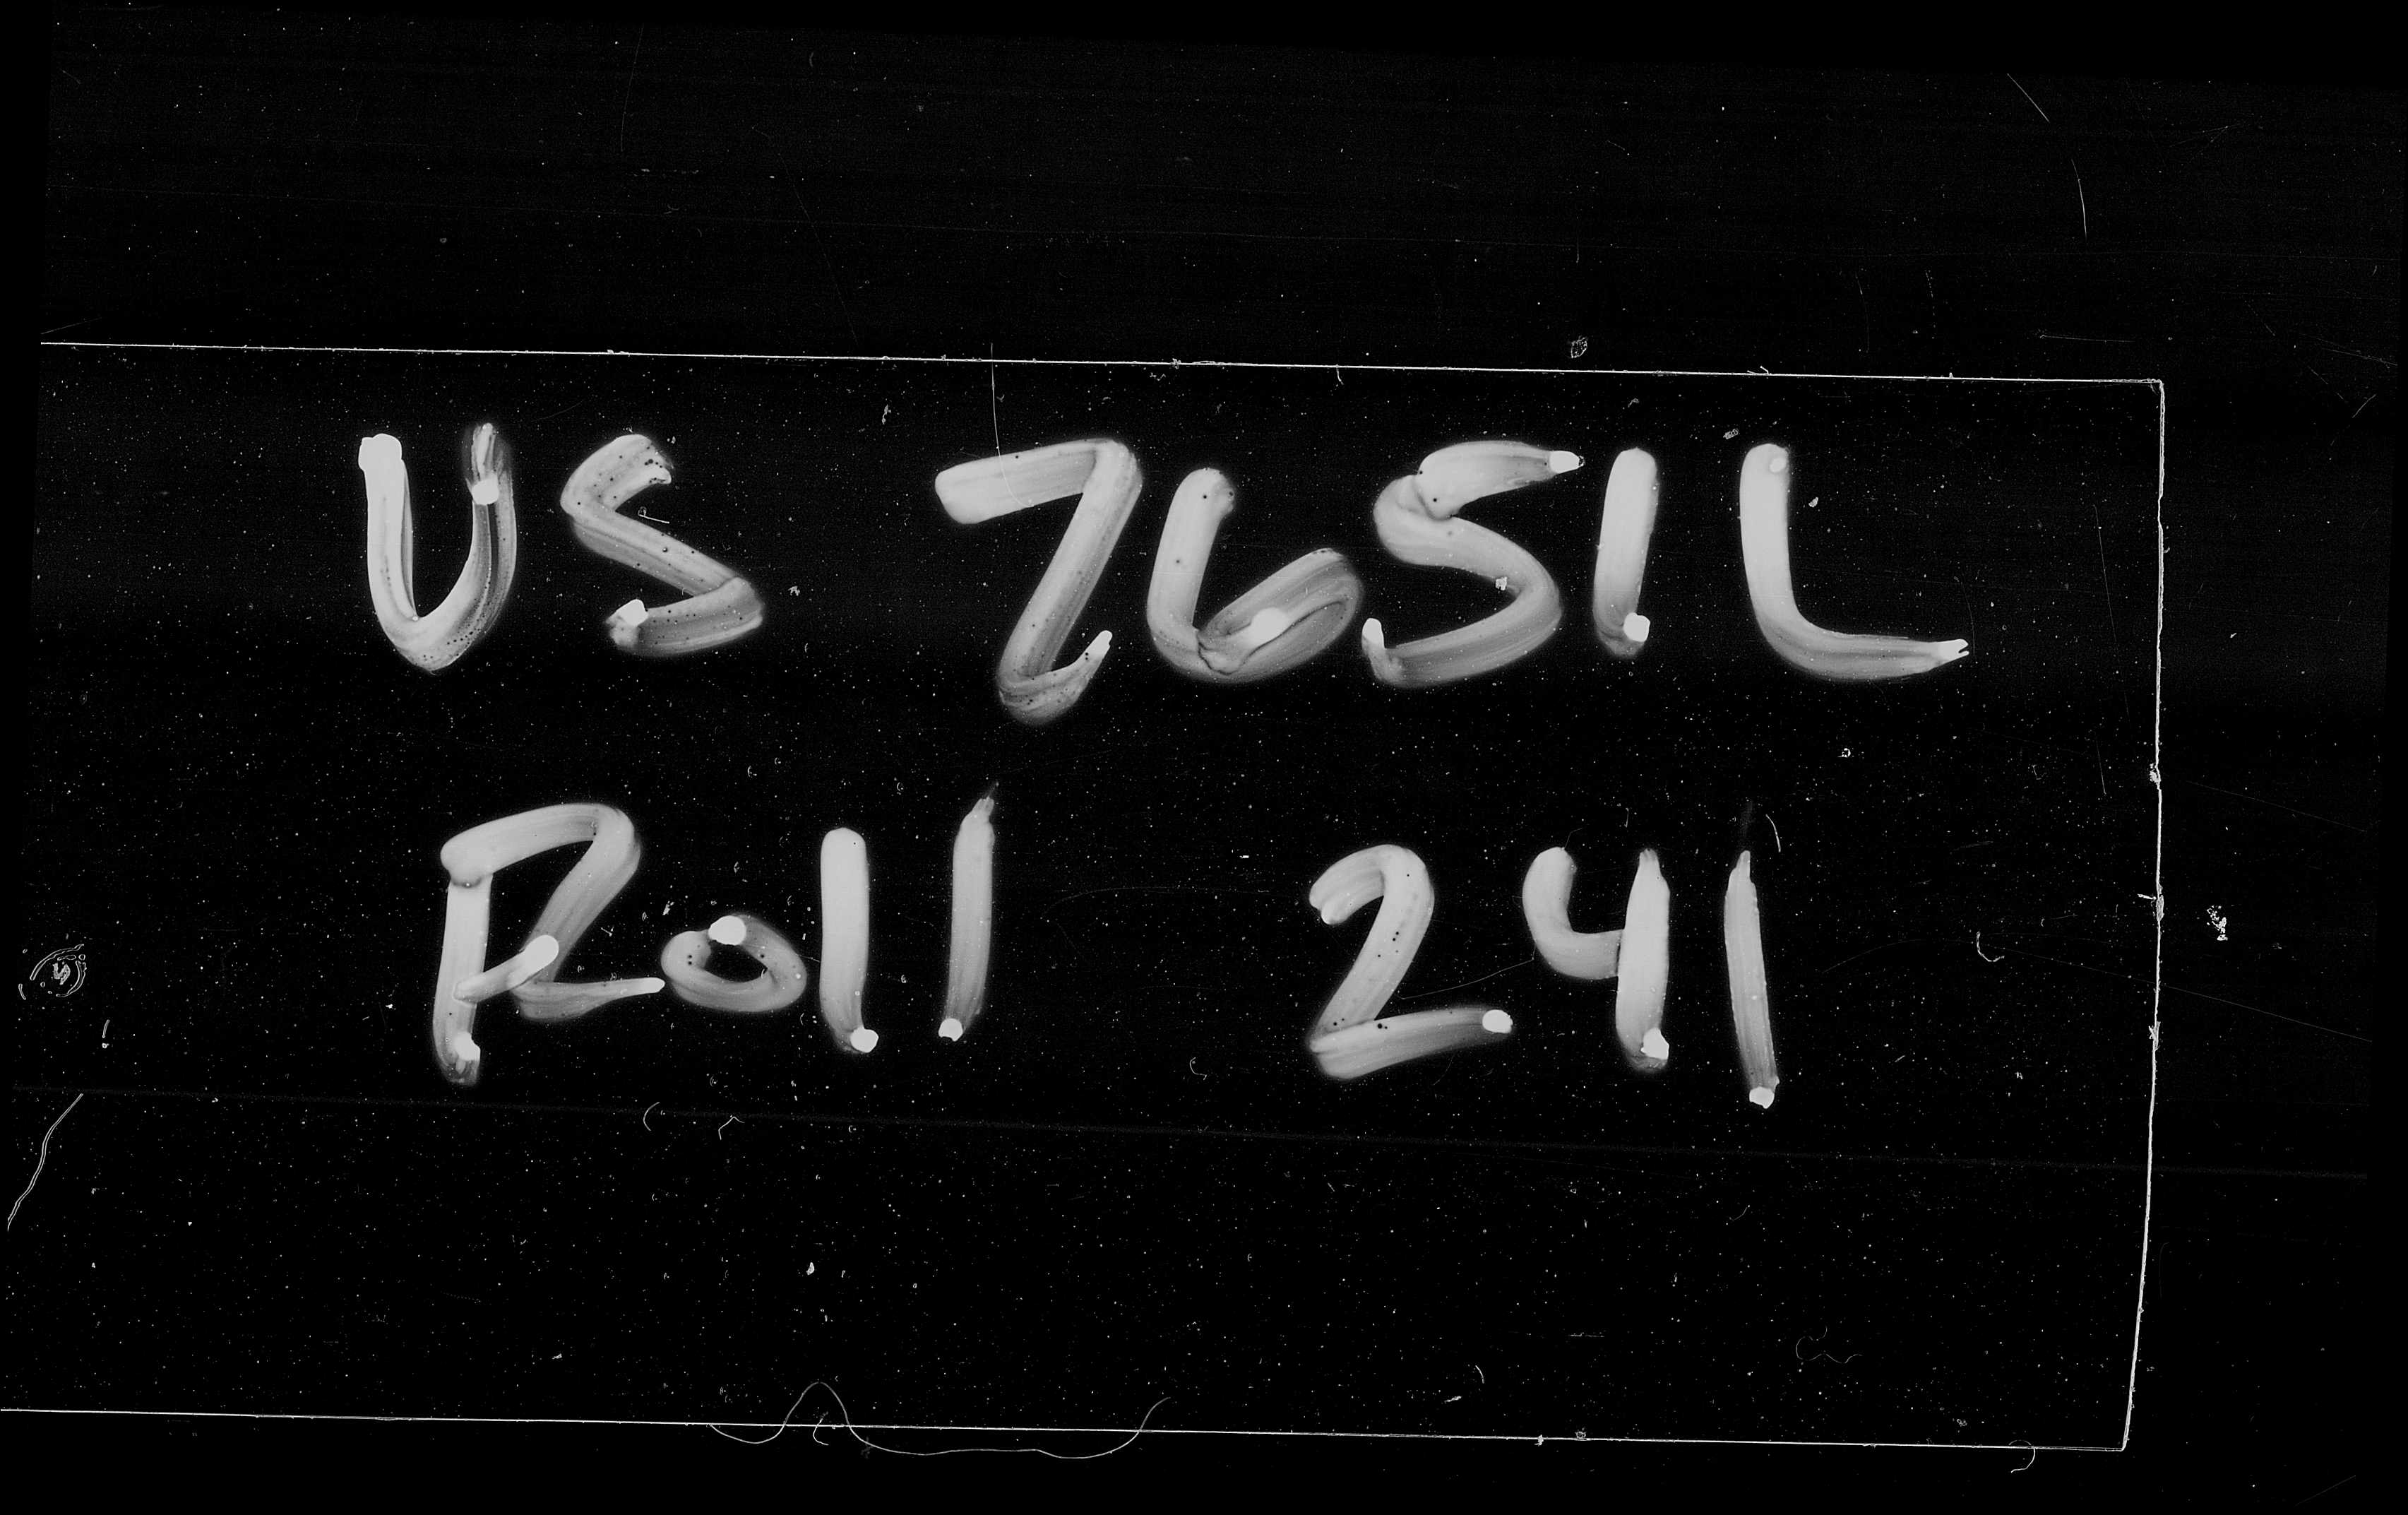 US 7651L
Roll 241